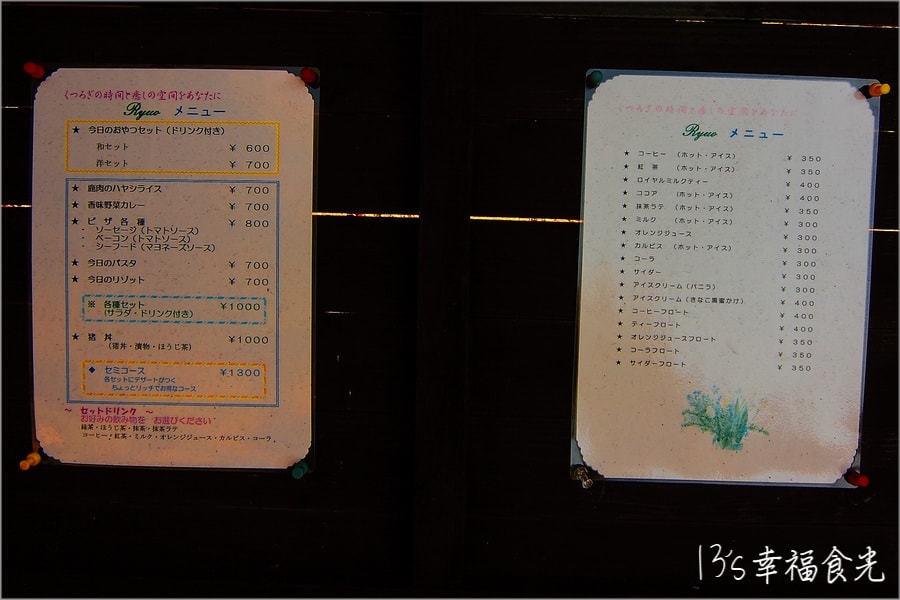 くつろぎの時間と癒しの空間をあなたに
Ryuo メニュー
★ 今日のおやつセット（ドリンク付き）
和セット ￥ 600
洋セット ￥ 700
★ 鹿肉のハヤシライス ￥ 700
★ 香味野菜カレー ￥ 700
★ ピ ザ 各 種 ￥ 800
・ ソーセージ（トマトソース）
・ ベーコン（トマトソース）
・ シーフード（マヨネーズソース）
★ 今日のパスタ ￥ 700
★ 今日のリゾット ￥ 700
※ 各種セット ￥1000
（サラダ・ドリンク付き）
★ 猪 丼 ￥1000
（猪丼・漬物・ほうじ茶）
◆ セミコース ￥1300
各セットにデザートがつく
ちょっとリッチでお得なコース
～ セットドリンク ～
お好みの飲み物を お選びください
緑茶・ほうじ茶・抹茶・抹茶ラテ
コーヒー・紅茶・ミルク・オレンジジュース・カルピス・コーラ
くつろぎの時間と癒しの空間をあなたに
Ryuo メニュー
★ コーヒー （ホット・アイス） ￥ 350
★ 紅 茶 （ホット・アイス） ￥ 350
★ ロイヤルミルクティー ￥ 400
★ ココア （ホット・アイス） ￥ 400
★ 抹茶ラテ （ホット・アイス） ￥ 350
★ ミルク （ホット・アイス） ￥ 300
★ オレンジジュース ￥ 300
★ カルピス （ホット・アイス） ￥ 300
★ コーラ ￥ 300
★ サイダー ￥ 300
★ アイスクリーム（バニラ） ￥ 300
★ アイスクリーム（きなこ黒蜜かけ） ￥ 400
★ コーヒーフロート ￥ 400
★ ティーフロート ￥ 400
★ オレンジジュースフロート ￥ 350
★ コーラフロート ￥ 350
★ サイダーフロート ￥ 350
13's幸福食光